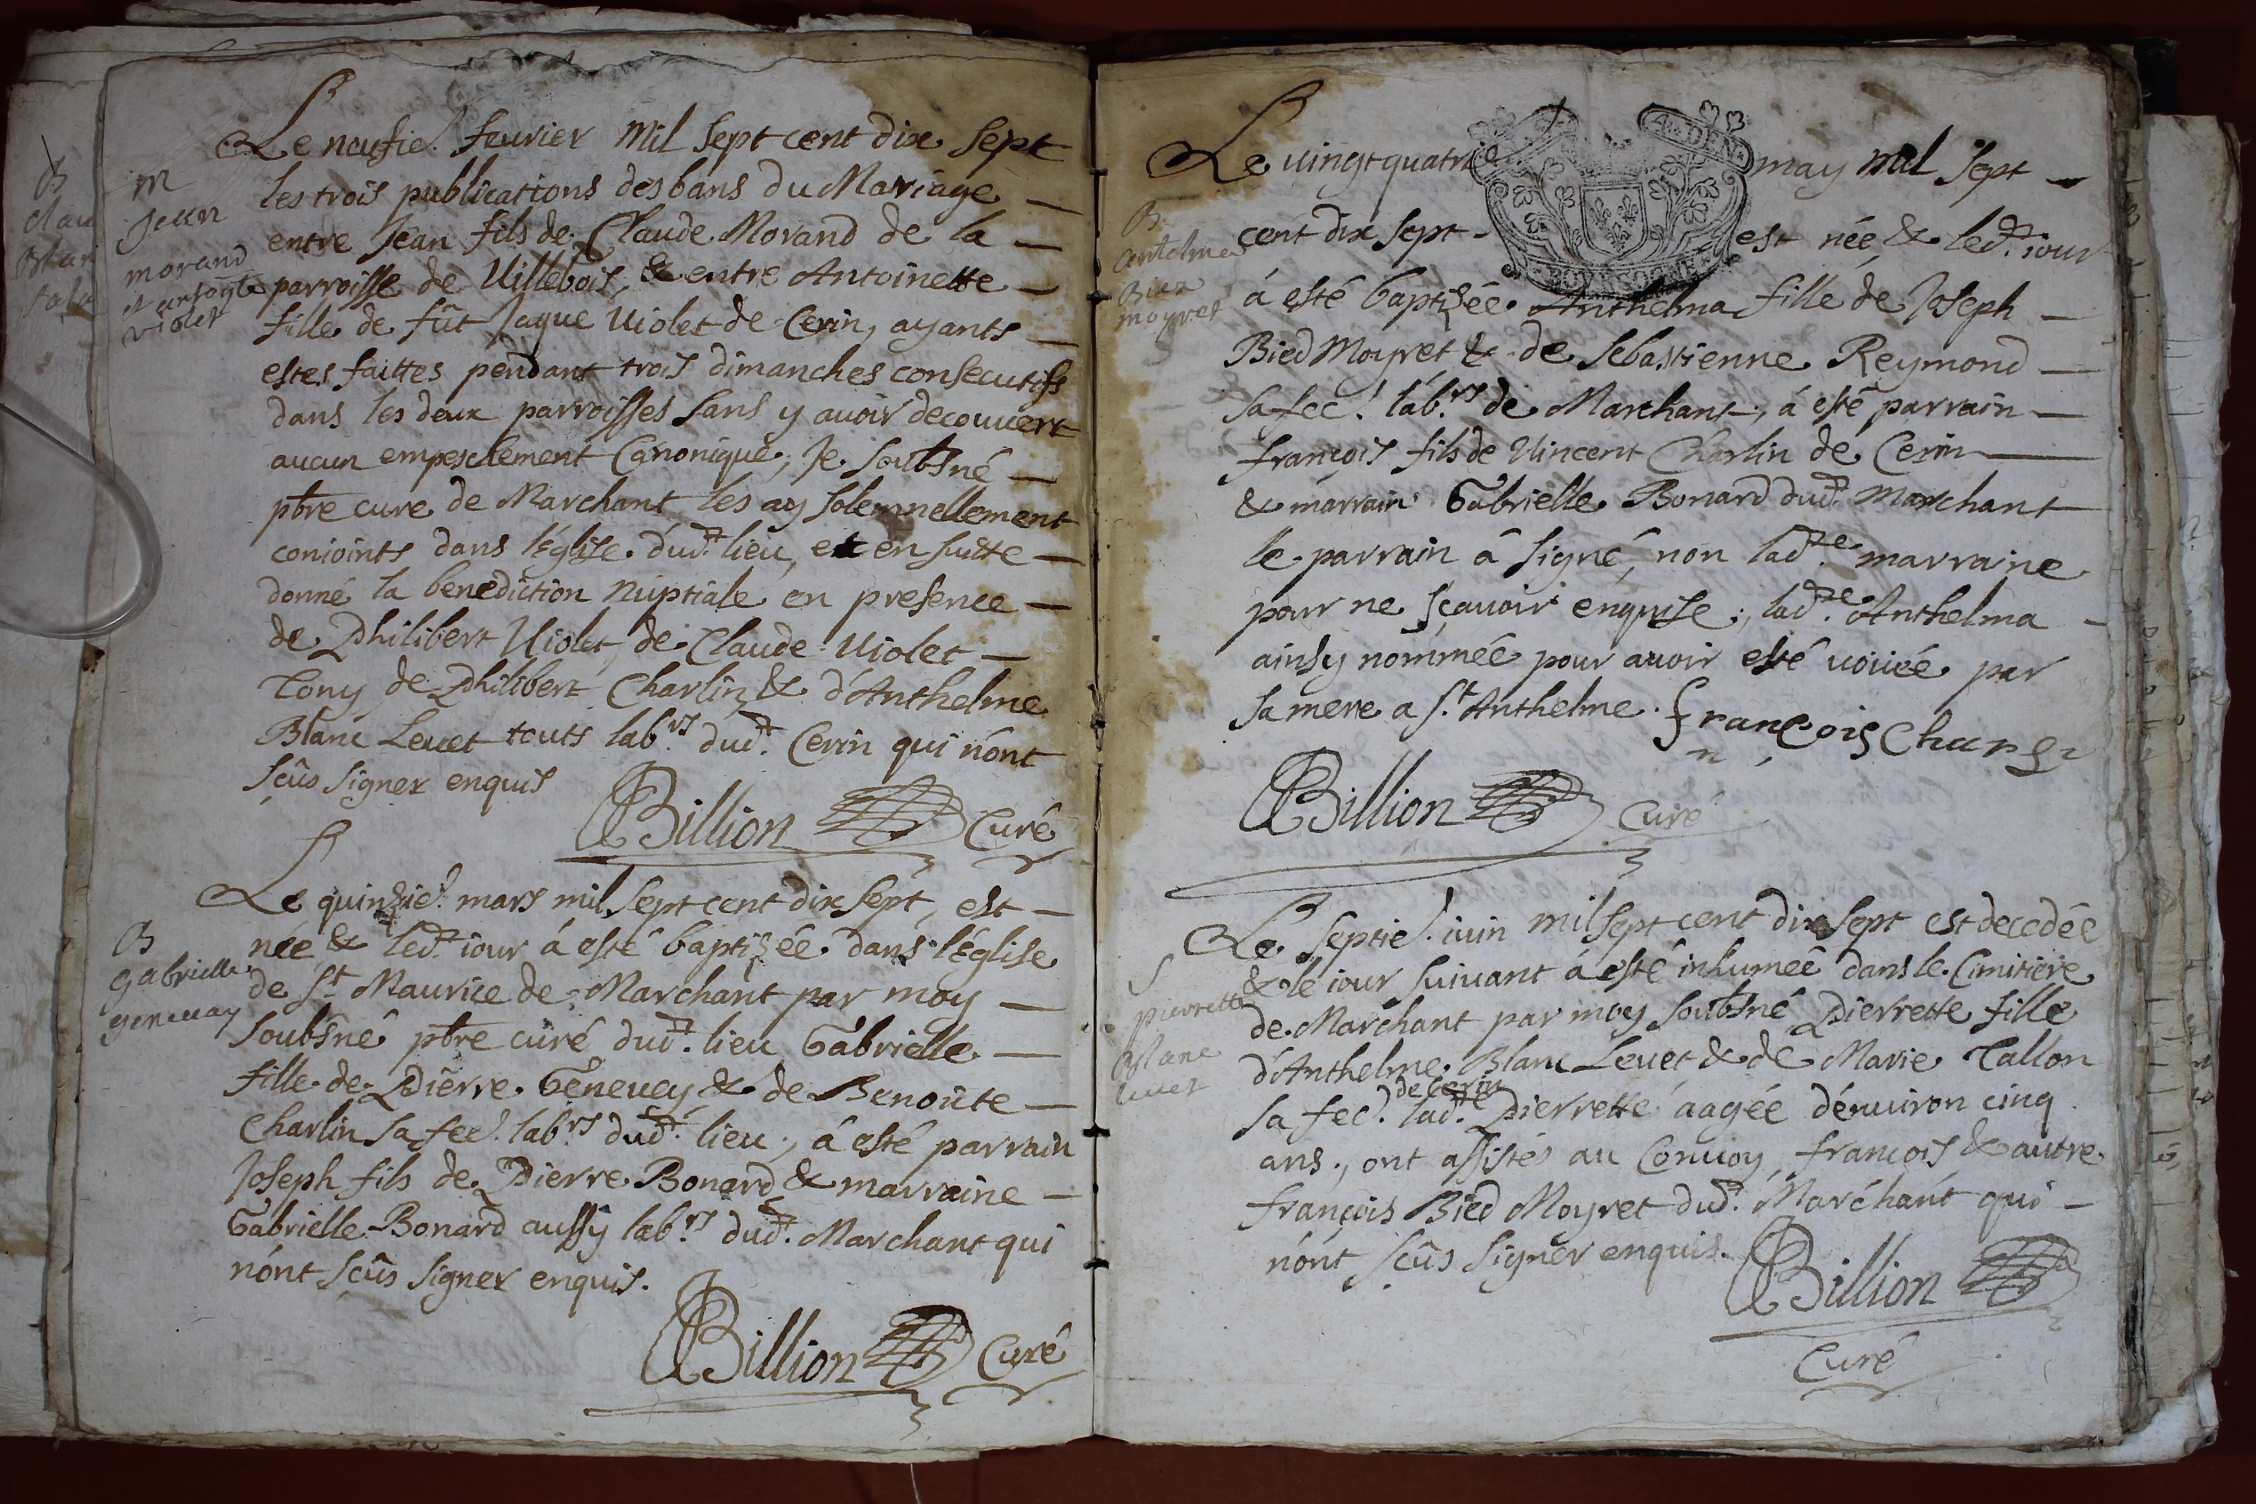 Le neufie. feurier mil sept cent dix sept
les trois publications des bans du Mariage
entre Jean fils de Claude Morand de la
parroisse de Uillebois, & entre Antoinette
fille de fût Jaque Uiolet de Cerin, ayants
estes faittes pendant trois dimanches consecutifs
dans les deux parroisses sans y auoir decouuert
aucun empeschement Canonique, Je soubsné
pbre cure de Marchant les ay solemnellement
conioints dans l'église dud. lieu, et en suitte
donné la benediction nuptiale en presence
de Philibert Uiolet, de Claude Uiolet
Tony de Philibert Charlin & d'Anthelme
Blanc Leuet touts lab.rs dud. Cerin qui n'ont
sçûs signer enquis
Billion Curé
m
Jean
morand
et
uiolet
Le quinzie. mars mil sept cent dix sept, est
née & led. iour á esté baptizée dans l'église
de St Maurice de Marchant par moy
soubsné pbre curé dud. lieu Gabrielle
fille de Pierre Geneuey & de Benoite
Charlin sa fee. lab.rs dud. lieu, á esté parrain
Joseph fils de Pierre Bonard & marraine
Gabrielle Bonard aussy lab.rs dud. Marchant qui
n'ont sçûs signer enquis.
Billion Curé
B
gabrielle
geneuay
B
clau
Le uingt quatrie may mil sept
cent dix sept est née & led. iour
á esté baptizée Anthelma fille de Joseph
Bied Moyret & de Sebastienne Reymond
sa fee. lab.rs de Marchant, á esté parrain
françois fils de Uincent Charlin de Cerin
& marrain Gabrielle Bonard dud. Marchant
le parrain á signé, non lad.te marraine
pour ne sçauoir enquise, lad.te Anthelma
ainsy nommée pour auoir esté uoüée par
sa mere a St. Anthelme. françois Charlin
Billion Curé
4. DEN
B.
antelme
Bied
moyret
Le septie. iuin mil sept cent dix sept est decedée
& le iour suiuant á esté inhumée dans le Cimitiere
de Marchant par moy soubsné Pierrette fille
d'Anthelme Blanc Leuet & de Marie Tallon
de Cerin
sa fee. lad.te Pierrette áagée d'enuiron cinq
ans, ont assistés au Conuoy, francois & autre
françois Bied Moyret dud. Marchant qui
n'ont sçûs signer enquis.
Billion
Curé
S
pierrette
Blanc
leuet